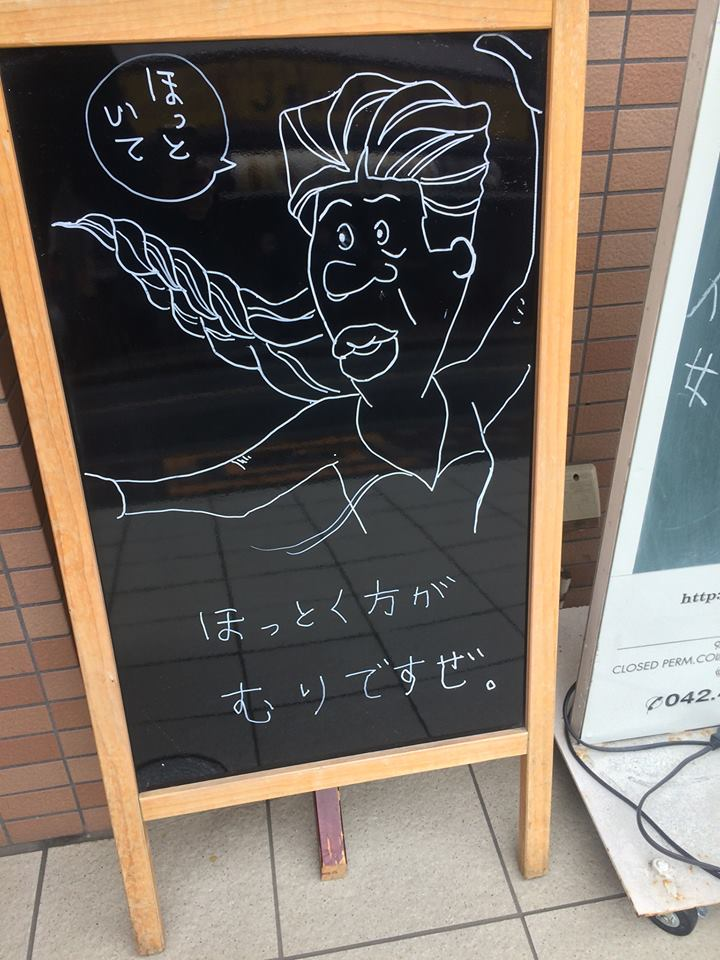 ほっと
いて
ほっとく方が
むりですぜ。
http:
CLOSED PERM.COL
042.4